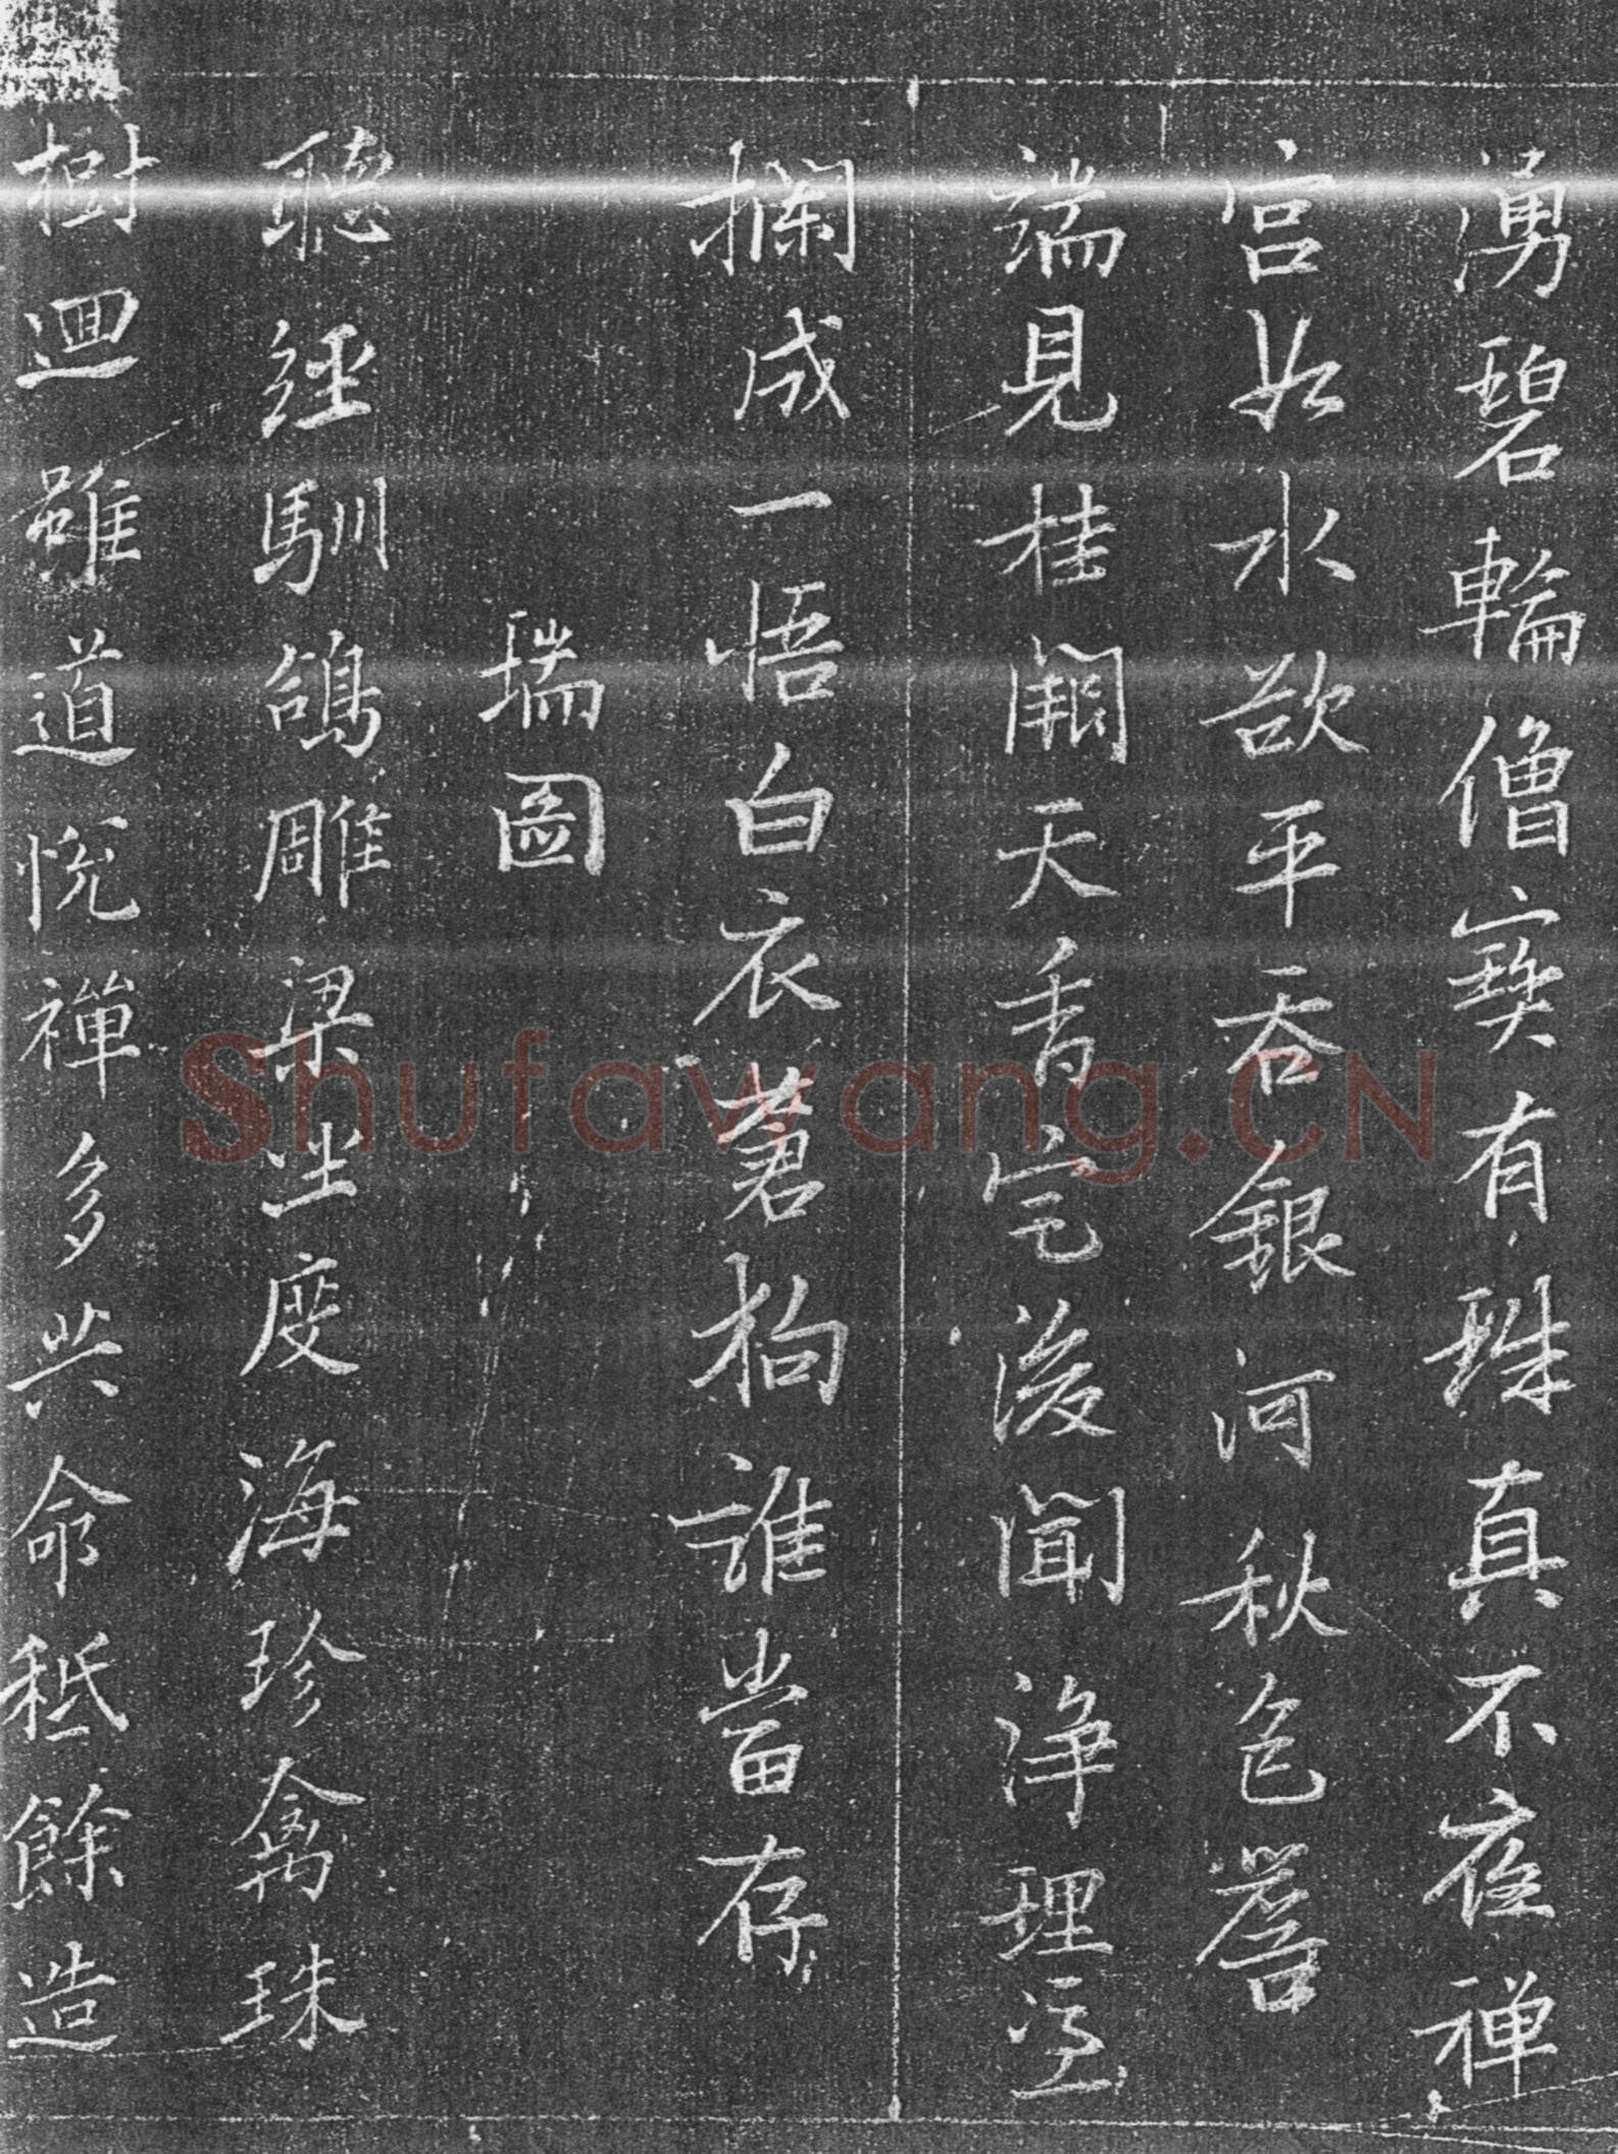 湧碧輪僧寶有珠真不夜禅
宮如水欲平吞銀河秋色簷
端見桂闕天香定後聞淨理憑
攔成一悟白衣蒼狗誰當存
瑞圖
聽經馴鴿雕梁坐度海珍禽珠
樹迴雖道悅禪多共命秪餘造
Shufawang.CN